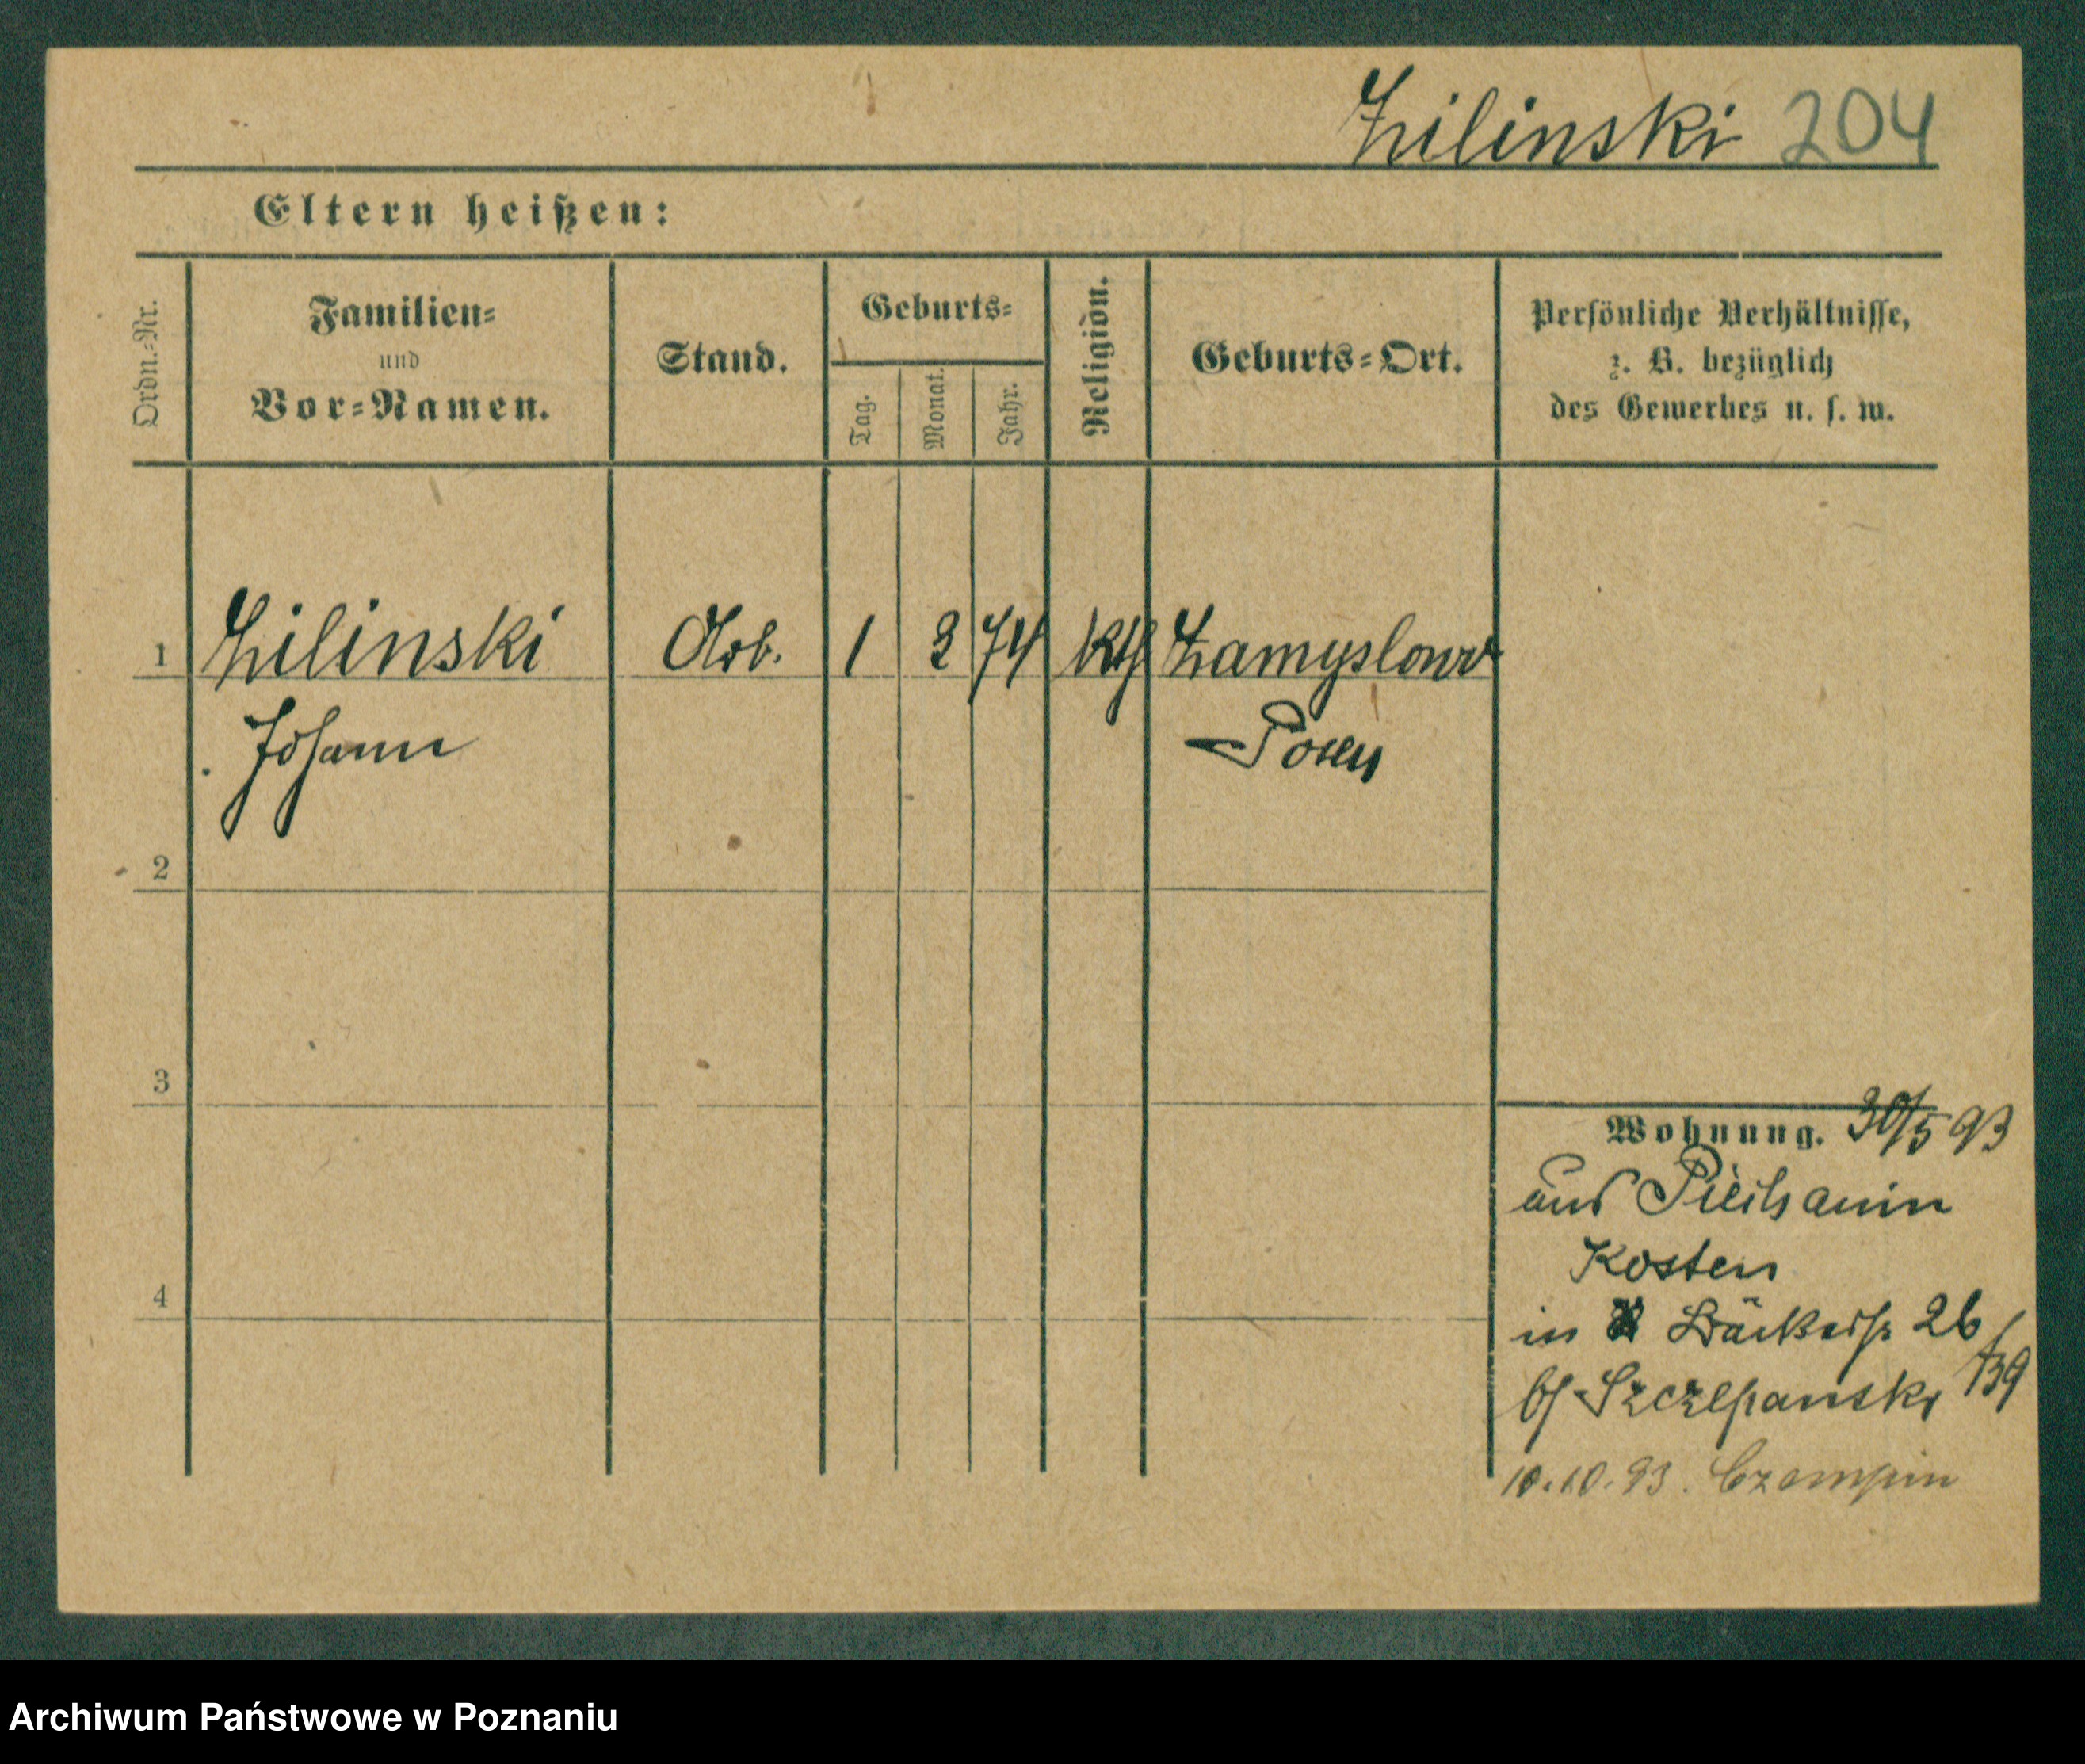 Zilinski 204
Eltern heißen:
Ordn.-Nr.
Familien-
und
Vor-Namen.
Stand.
Geburts-
Tag.
Monat.
Jahr.
Religion.
Geburts-Ort.
Persönliche Verhältnisse,
z. B. bezüglich
des Gewerbes u. s. w.
1 Zilinski Arb. 1 2 74 Kth Zamyslowo
Johann Posen
2
3
Wohnung. 30/5 93
aus
Kosten
4
in Bäckerstr 26
bei Szczepanski 139
10.10.93. Czempin
Archiwum Państwowe w Poznaniu